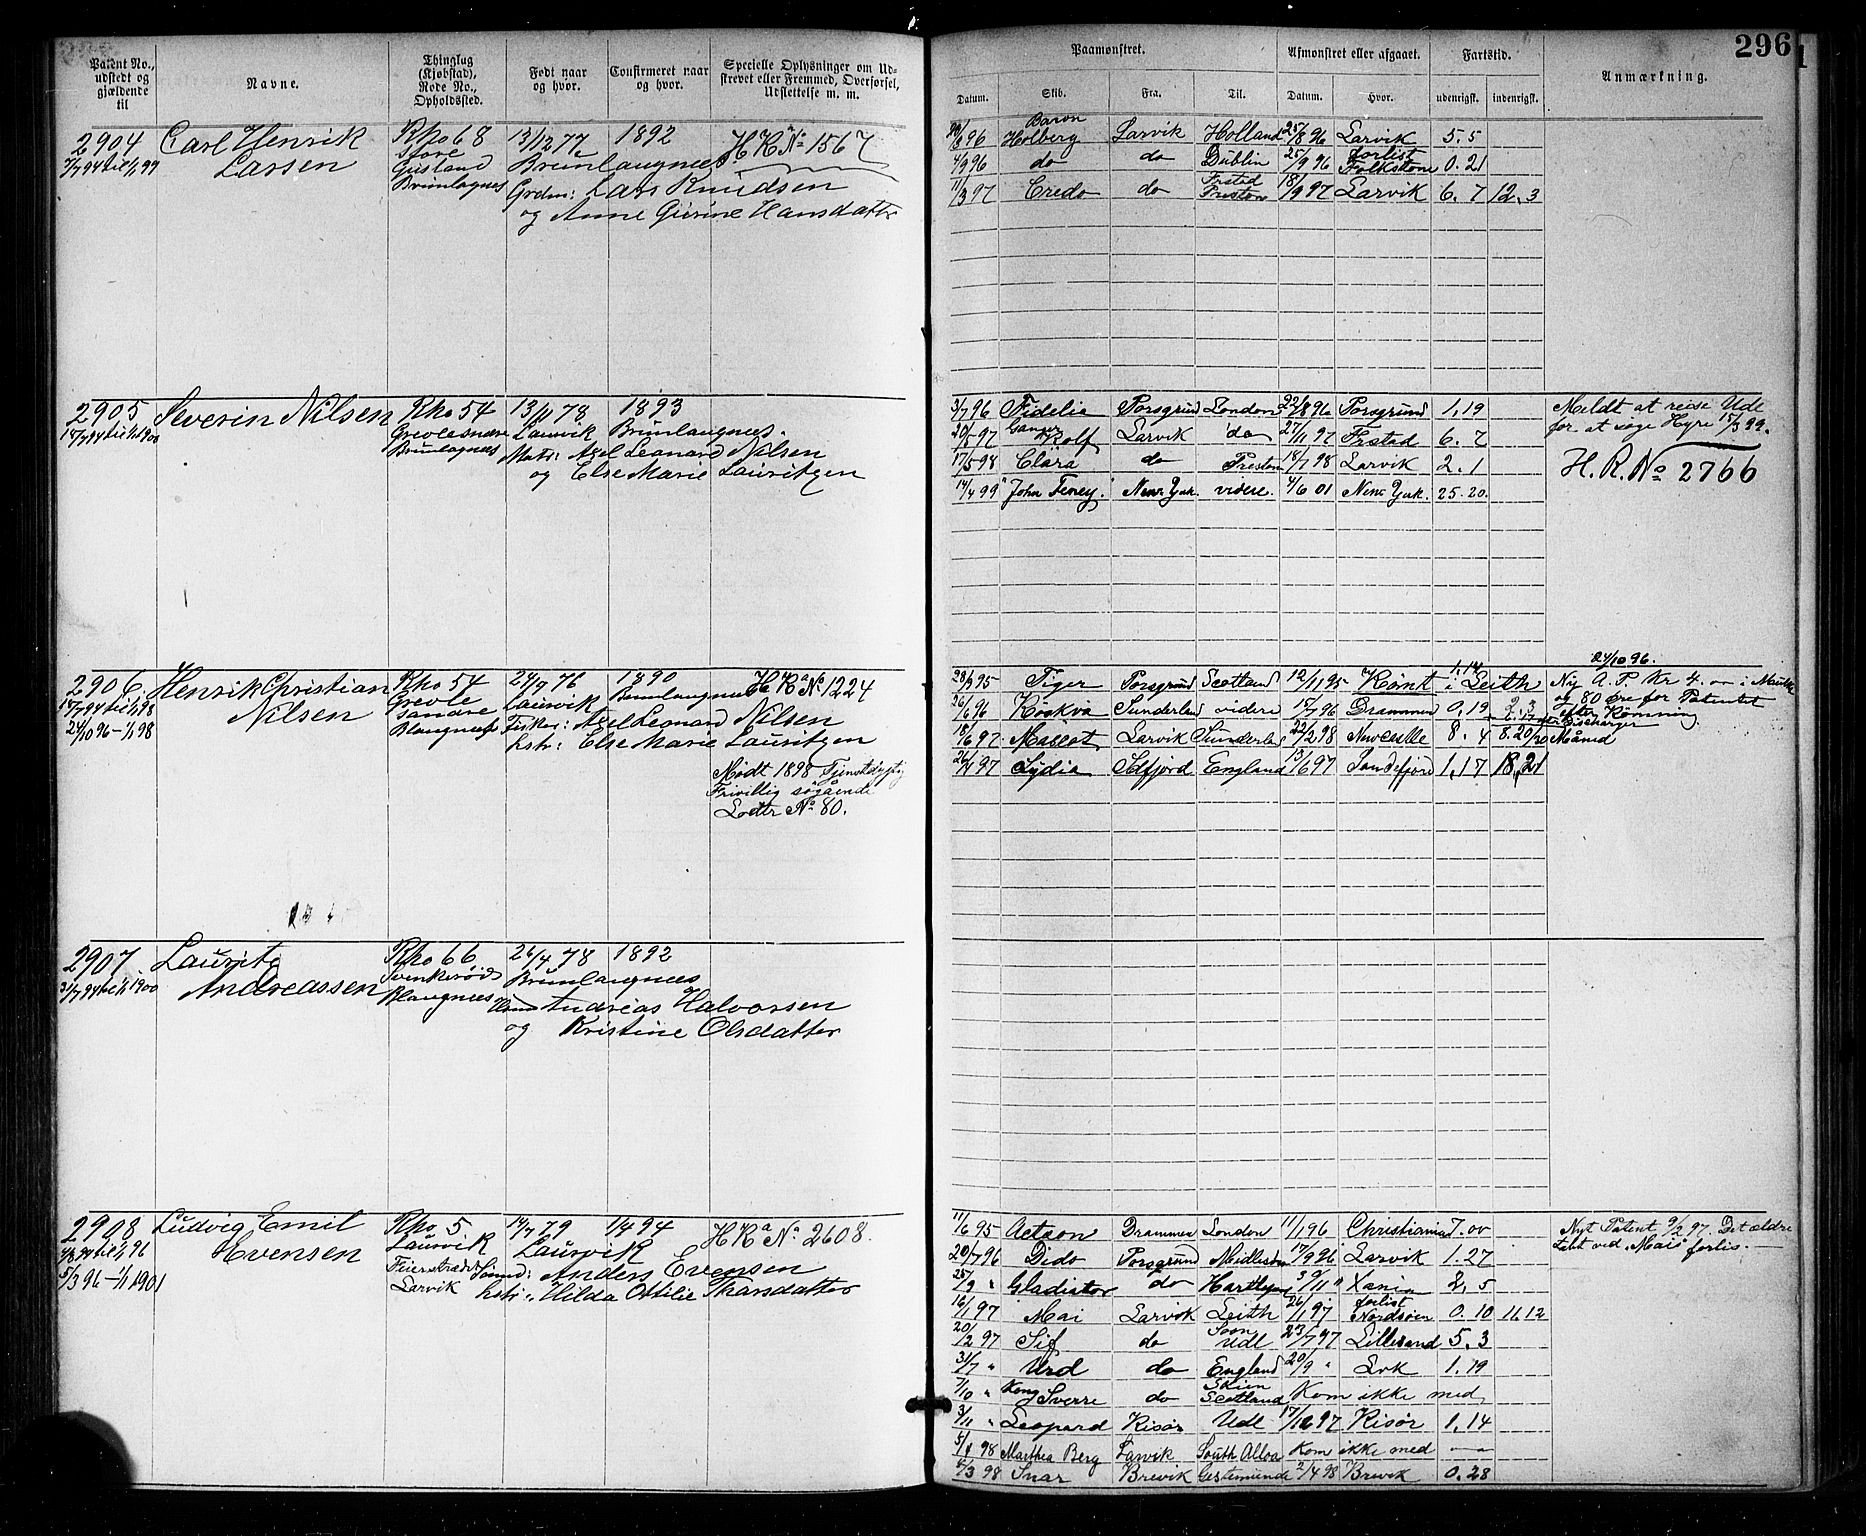 296
Patent No., udstedt og gjældende til
Navne.
Thinglug (Kjøbstad), Rode No., Opholdssted.
Født naar og hvor.
Confirmeret naar og hvor.
Specielle Oplysninger om Udstrevet eller Fremmed, Overførsel, Udslettelse m. m.
Paamønstret.
Afmønstret eller afgaaet.
Fartstid.
Anmærkning.
Datum. Skib. Fra. Til. Datum. Hvor. udenrigst. indenrigst.
2904 Carl Henrik Rko 68 13/12 77 1892 H Ka No 1567
7/7 94 til 1/1 99 Larsen Store Brunlaugnees
Brunlagnes Lars Knudsen
og Anne Gurine Hansdatter
Baron
/8 96 Holberg Larvik Holland 25/8 96 Larvik 5.5
4/9 96 do do Dublin 25/9 96 forlist Folkstone 0.21
11/3 97 Credo do Frstad Preston 18/9 97 Larvik 6.7 12.3
2905 Severin Nilsen Rko 54 13/11 78 1893
til 1/1 1900 Laurvik Brunlaugnees.
Brunlagnes Matr: Axel Leonard Nilsen
og Else Marie Lauritzen
3/7 96 Fidelia Porsgrund London 22/8 96 Porsgrund 1.19
20/5 97 Ganger Rolf Larvik do 27/11 97 Frstad 6.7
17/5 98 Clara do Preston 18/7 98 Larvik 2.1
14/4 99 "John Feney." New Yrk. videre. 4/6 01 New Yrk. 25.20.
Meldt at reise Ude
for at søge Hyre 15/3 99.
H. R. No 2766
2906 Henrik Christian Rko 54 24/9 76 1890 H Ka No 1224
til 1/1 98 Nilsen Laurvik Brunlaugnees
24/10 96 – 1/1 98 Blaugnees Fisker: Axel Leonard Nilsen
hstr: Else Marie Lauritzen
Mødt 1898 Tjenstdygtig
Frivillig søgående
Lodtr No 80.
28/9 95 Tiger Porsgrund Scotland 12/11 95 Rømt i Leith 1.14
26/6 96 Røskva Sunderland videre 15/7 96 Drammen 0.19
18/6 97 Mascot Larvik Sunderla 22/2 98 Newcastle 8.4
26/4 97 Lydia England 13/6 97 Sandefjord 1.17 18.21
24/10 96.
Ny A. P. Kr 4.
og 80 øre for Patentet
efter Rømning
Måned
2907 Lauritz Rko 66 26/4 78 1892
31/7 94 til 1/1 1900 Andreassen Brunlaugnees
Blaugnees Andreas Halvorsen
og Kristine Olsdatter
2908 Ludvig Emil Rko 5 14/7 79 1/4 94 H Ka No 2608.
til 1/1 96 Evensen Laurvik Laurvik
5/3 96 – 1/1 1901 Larvik Sømd: Anders Evensen
hstr: Hilda Otilie Thorsdatter
11/6 95 Actæon Drammen London 11/1 96 Christiania 7.00
20/7 96 Dido Porsgrund Midlesbro 17/9 96 Larvik 1.27
25/9 " Gladiator do Hartlepool 30/11 " Xania 2.5
16/1 97 Mai Larvik Leith 26/1 97 forlist Nordsøen 0.10 11.12
20/2 97 Sif do Soon Udl 23/7 97 Lillesand 5.3
31/7 " Urd do England 20/9 " Lvk 1.19
7/10 " Kong Sverre do Skien Scotland Kom ikke med
3/11 " Leopard Risør Udl 17/12 97 Risør 1.14
5/1 98 Marthea Berg Larvik South Alloa Kom ikke med – –
5/3 98 Snar Brevik Gestemunde 2/4 98 Brevik 0.28
Nyt Patent 9/2 97. Det ældre
tabt ved "Mais" forlis. —